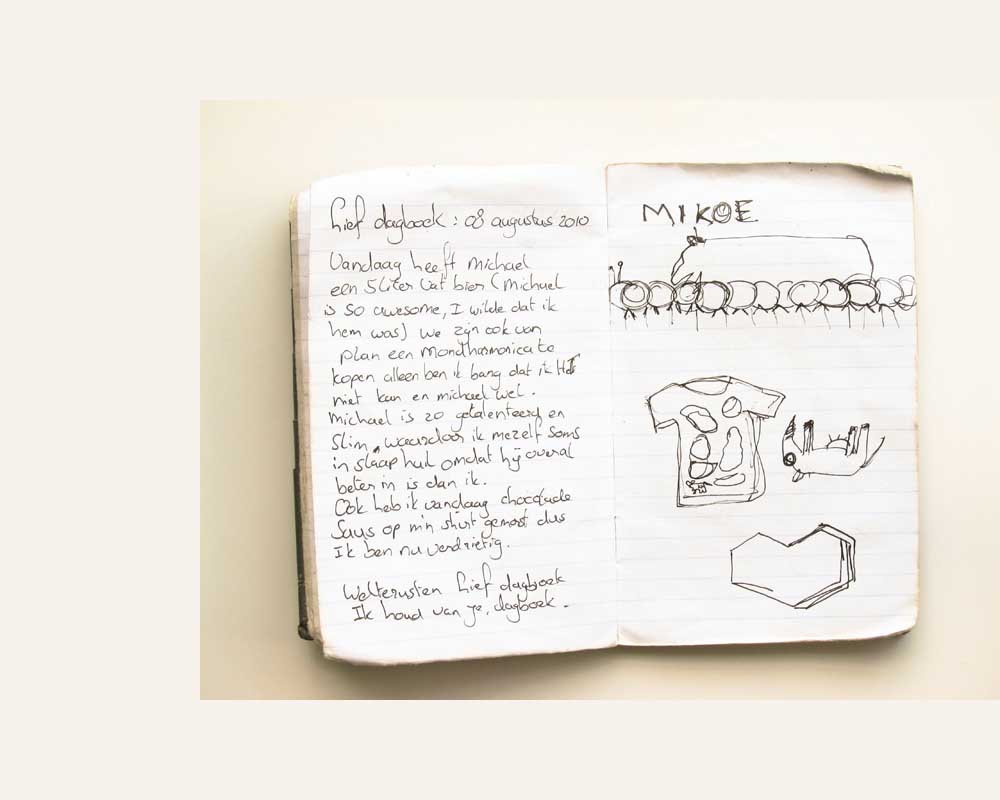 Lief dagboek : 08 augustus 2010
Vandaag heeft michael
een 5liter vat bier (michael
is so awesome, I wilde dat ik
hem was) we zijn ook van
plan een mondharmonica te
kopen alleen ben ik bang dat ik het
niet kan en michael wel.
michael is zo getalenteerd en
slim, waardoor ik mezelf soms
in slaap huil omdat hij overal
beter in is dan ik.
Ook heb ik vandaag chocolade
saus op m'n shirt gemorst dus
Ik ben nu verdrietig.
Welterusten lief dagboek
Ik houd van je, dagboek.
MIKOE